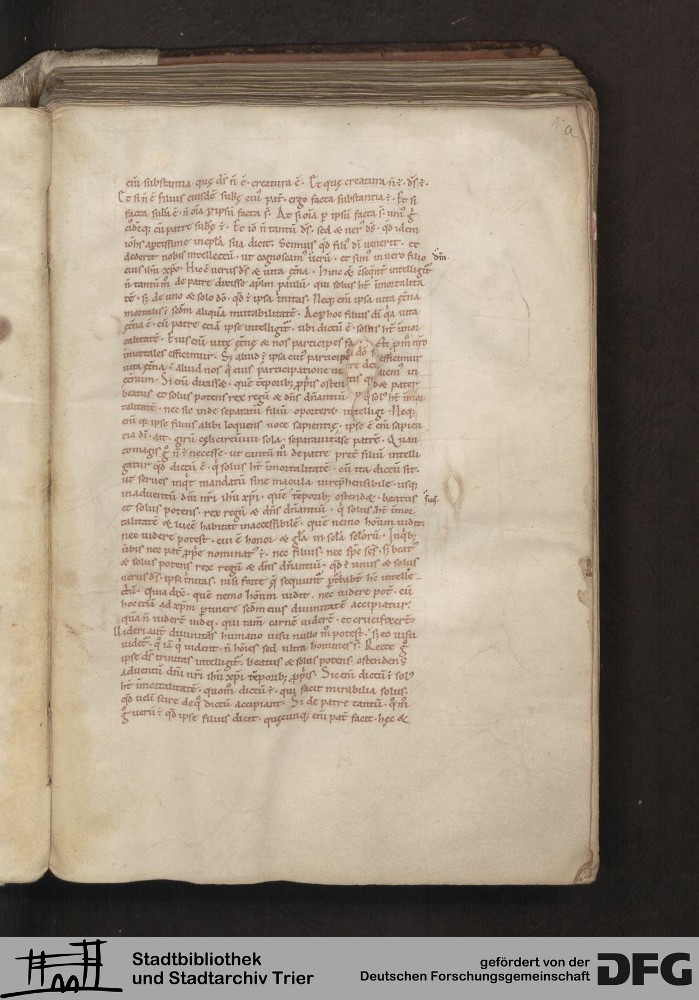 a
enī substantia quę ds̄ n̄ ē · creatura ē · Et quę creatura n̄ ē · ds̄ ē ·
Et si n̄ ē filius eiusdē subę cuī pat̄ · ergo facta substantia ē · Et si
facta subā ē · n̄ oīa p ipsū facta s̄ · At si oīa p ipsū facta s̄ · unī g̊
eidēq; cū patre subę ē · Et iō n̄ tantū ds̄ · sed & uer ds̄ · qd idem
iohs aptissime in epla sua dicit · Scimus qd fili dī uenerit · et
dederit nobis intellectū · ut cognoscam uerū · et sim in uero filio
eius ihū xpo · Hic ē uerus ds̄ & uita ęt̄na · Hinc & c̄seqnt intelligit
n̄ tantūm de patre dixisse aplm paulū · qui solus ht īmortalita
tē · s; de uno & solo dō · qd ē ipsa t̄nitas · Neq; enī ipsa uita ęt̄na
mortalis ē scdm aliquā mutabilitatē · Ac p hoc filius dī qa uita
ęt̄na ē · cū patre etiā ipse intelligit · ubi dictū ē · solus ht īmor
talitatē · Eius enī uitę ęt̄nę & nos participes
īmortales efficimur · S; aliud ē ipsa cuī participes efficimur
uita ęt̄na · aliud nos q̄ eius participatione
et̄num · Si enī dixisset · quē tēporib; ppiis osten pater
beatus et solus potens rex regū & dn̄s dn̄antiū · q̄ sol ht īmor
talitatē · nec sic inde separatū filiū oporteret intelligi · Neq;
enī q̄ ipse filius alibi loquens uoce sapientię · ipse ē enī sapien
tia dī · ait · girū cęli circuiui sola · separauit a se patrē · Quan
tomagis g̊ n̄ ē necesse · ut tantū m̄ de patre pret̄ filiū intelli
gatur qd dictū ē · q̄ solus ht īmortalitatē · cū ita dictū sit ·
ut serues inqt mandatū sine macula inrephensibile · usq;
in aduentū dn̄i nr̄i ihū xpi · quē tēporib; ostendet · beatus
et solus potens · rex regū & dn̄s dn̄antiū · q̄ solus ht īmor
talitatē & lucē habitat inaccessibilē · quē nemo hoīum uidit
nec uidere potest · cui ē honor & gla in scla sclorū · In qb;
uerbis nec pat̄ ppe nominat ē · nec filius · nec spc̄ scs̄ · s; beat
& solus potens rex regū & dn̄s dn̄antiū · qd ē unus & solus
uerus ds̄ · ipsa t̄nitas · nisi forte q̄ secuntur
ctū · quia dix̄ · quē nemo hoīum uidit · nec uidere pot̄ · cū
hoc etiā ad xpm ptinere scdm eius diuinitatē accipiatur ·
quā n̄ uider iudei · qui tam̄ carnē uider · et crucifixer
Uideri aut̄ diuinitas humano uisu nullo m̊ potest · s; eo uisu
uidet · q̄ iā q̄ uident · n̄ hoīes sed ultra homines s̄ · Recte g̊
ipse ds̄ trinitas intelligit · beatus & solus potens · ostendens
aduentū dn̄i nr̄i ihū xpi tēporib; ppiis · Sic enī dictū ē sol
ht īmortalitatē · quom̊ dictū ē · qui facit mirabilia solus ·
qd uelī scire de q̊ dictū accipiant · Si de patre tantū · q̊m
g̊ uerū ē · qd ipse filius dicit · quęcunq; enī pat̄ facit · hęc &
Stadtbibliothek
und Stadtarchiv Trier
gefördert von der
Deutschen Forschungsgemeinschaft
DFG